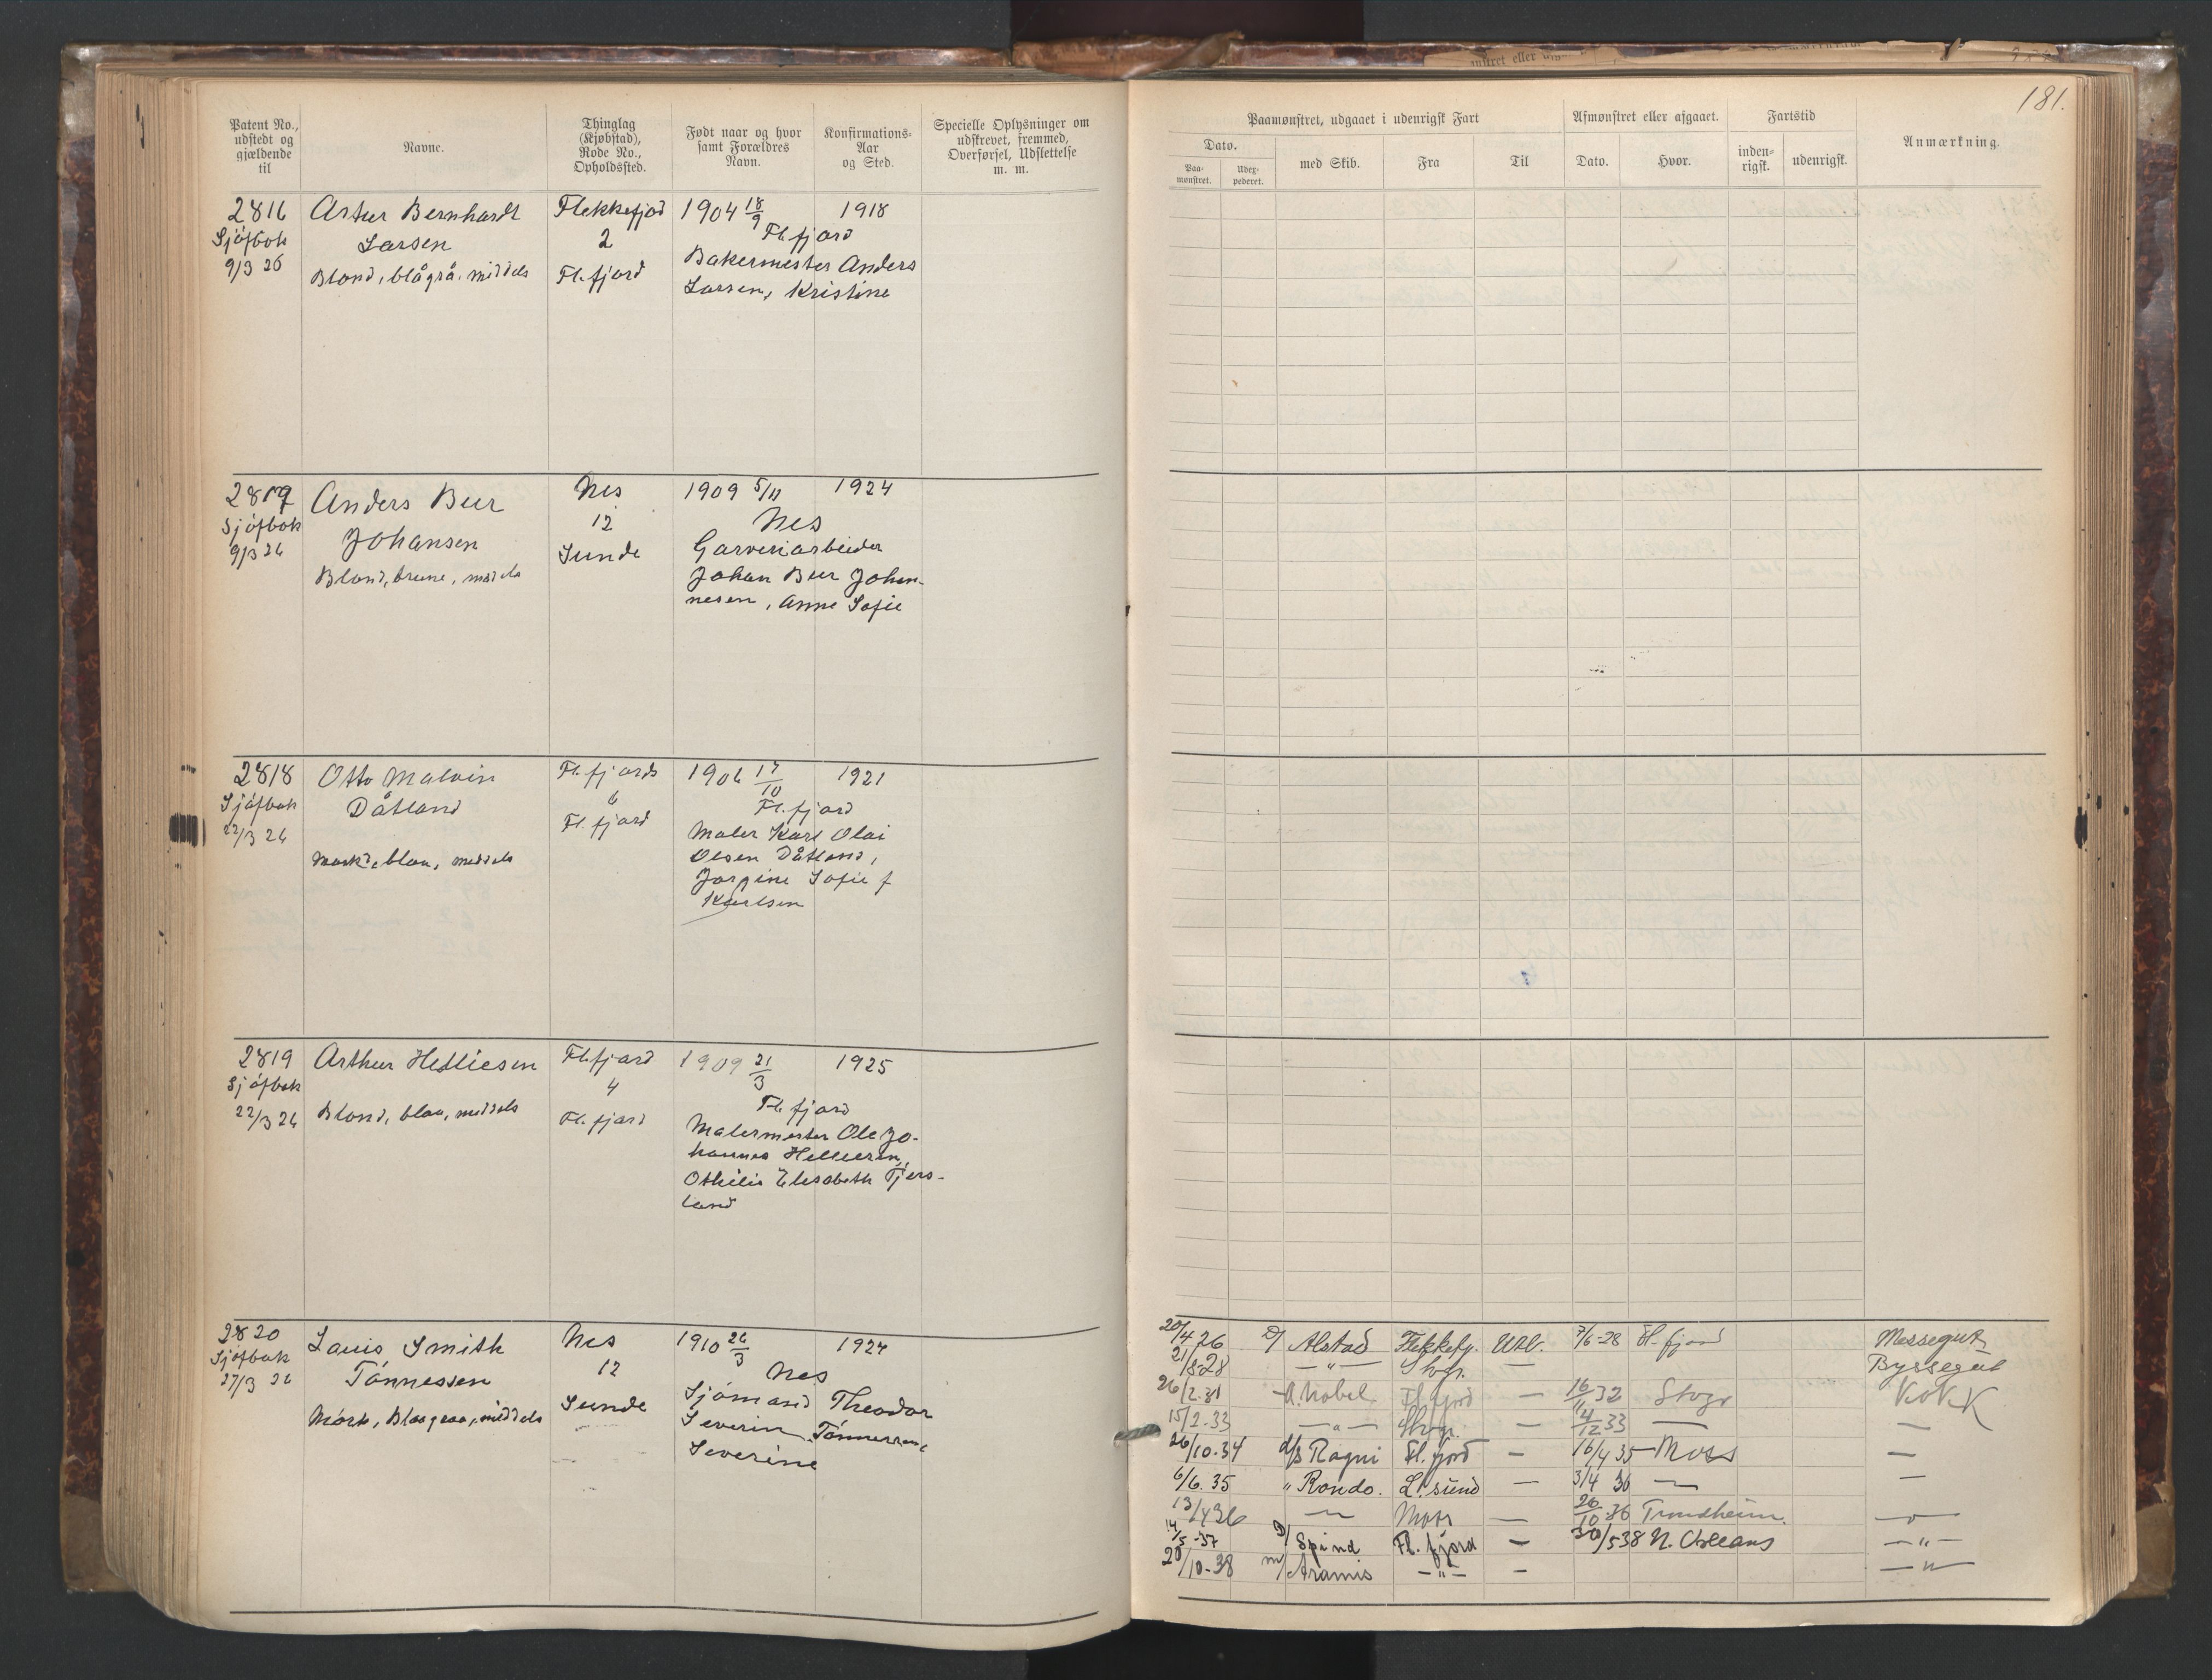 181.
Patent No., udstedt og gjældende til
Navne.
Thinglag (Kjøbstad), Rode No., Opholdssted.
Født naar og hvor samt Forældres Navn.
Konfirmations-Aar og Sted.
Specielle Oplysninger om udskrevet, fremmed, Overførsel, Udslettelse m. m.
Paamønstret, udgaaet i udenrigsk Fart
Afmønstret eller afgaaet.
Fartstid
Anmærkning.
Dato.
Paa-mønstret.
Uder-pederet.
med Skib.
Fra
Til
Dato.
Hvor.
inden-rigsk.
udenrigsk.
2816 Artur Bernhardt Flekkefjord 1904 18/9 1918
Sjøfbok Larsen 2 Fl.fjord
9/3 26 Blond, blågrå, middels Fl.fjord Bakermester Anders
Larsen, Kristine
2817 Anders Beer Nes 1909 5/11 1924
Sjøfbok Johansen 12 Nes
9/3 26 Blond, brune, middels Sunde Garveriarbeider
Johan Beer Johan-
nesen, Anne Sofie
2818 Otto Malvin Fl.fjord 1906 17/10 1921
Sjøfbok Dåtland 6 Fl.fjord
22/3 26 Fl.fjord Maler Karl Olai
Mørk, blaa, middels Olsen Dåtland,
Jorgine Sofie f
Karlsen
2819 Arthur Helliesen Fl.fjord 1909 21/3 1925
Sjøfbok 4 Fl.fjord
22/3 26 Blond, blaa, middels Fl.fjord Malermester Ole Jo-
hannes Helliesen,
Othilie Elisabeth Tjers-
land
2820 Louis Smith Nes 1910 26/3 1924
Sjøfbok Tønnessen 12 Nes
27/3 26 Mørk, Blaagraa, middels Sunde Sjømand Theodor
Severin Tønnessen,
Severine
20/4 26 D/ Alstad Flekkefj. Utl. 7/6-28 Fl.fjord Messegut
21/8 28 —"— Stvgr. — Byssegut
26/2. 31 A. Nobel Fl.fjord — 16/11 32 Stvgr KokK
15/2. 33 —"— Stvgr. — 4/12 33 — —
26/10. 34 d/s Ragni Fl.fjord — 16/4 35 Moss —
6/6. 35 " Rondo. L.sund — 3/4 36 — —
13/4 36 — Moss — 26/10 36 Trondheim. —
14/5 -37 D/ Spind Fl.fjord — 30/5 38 N. Orleans —"—
20/10-38 m/ Aramis —"— — —"—